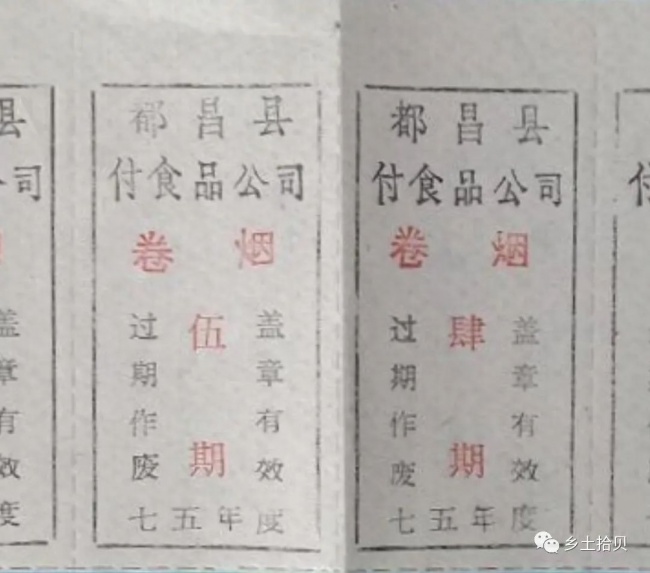 县
公司
盖章有效
度
都昌县
付食品公司
卷烟
过期作废
伍期
盖章有效
七五年度
都昌县
付食品公司
卷烟
过期作废
肆期
盖章有效
七五年度
付
乡土拾贝